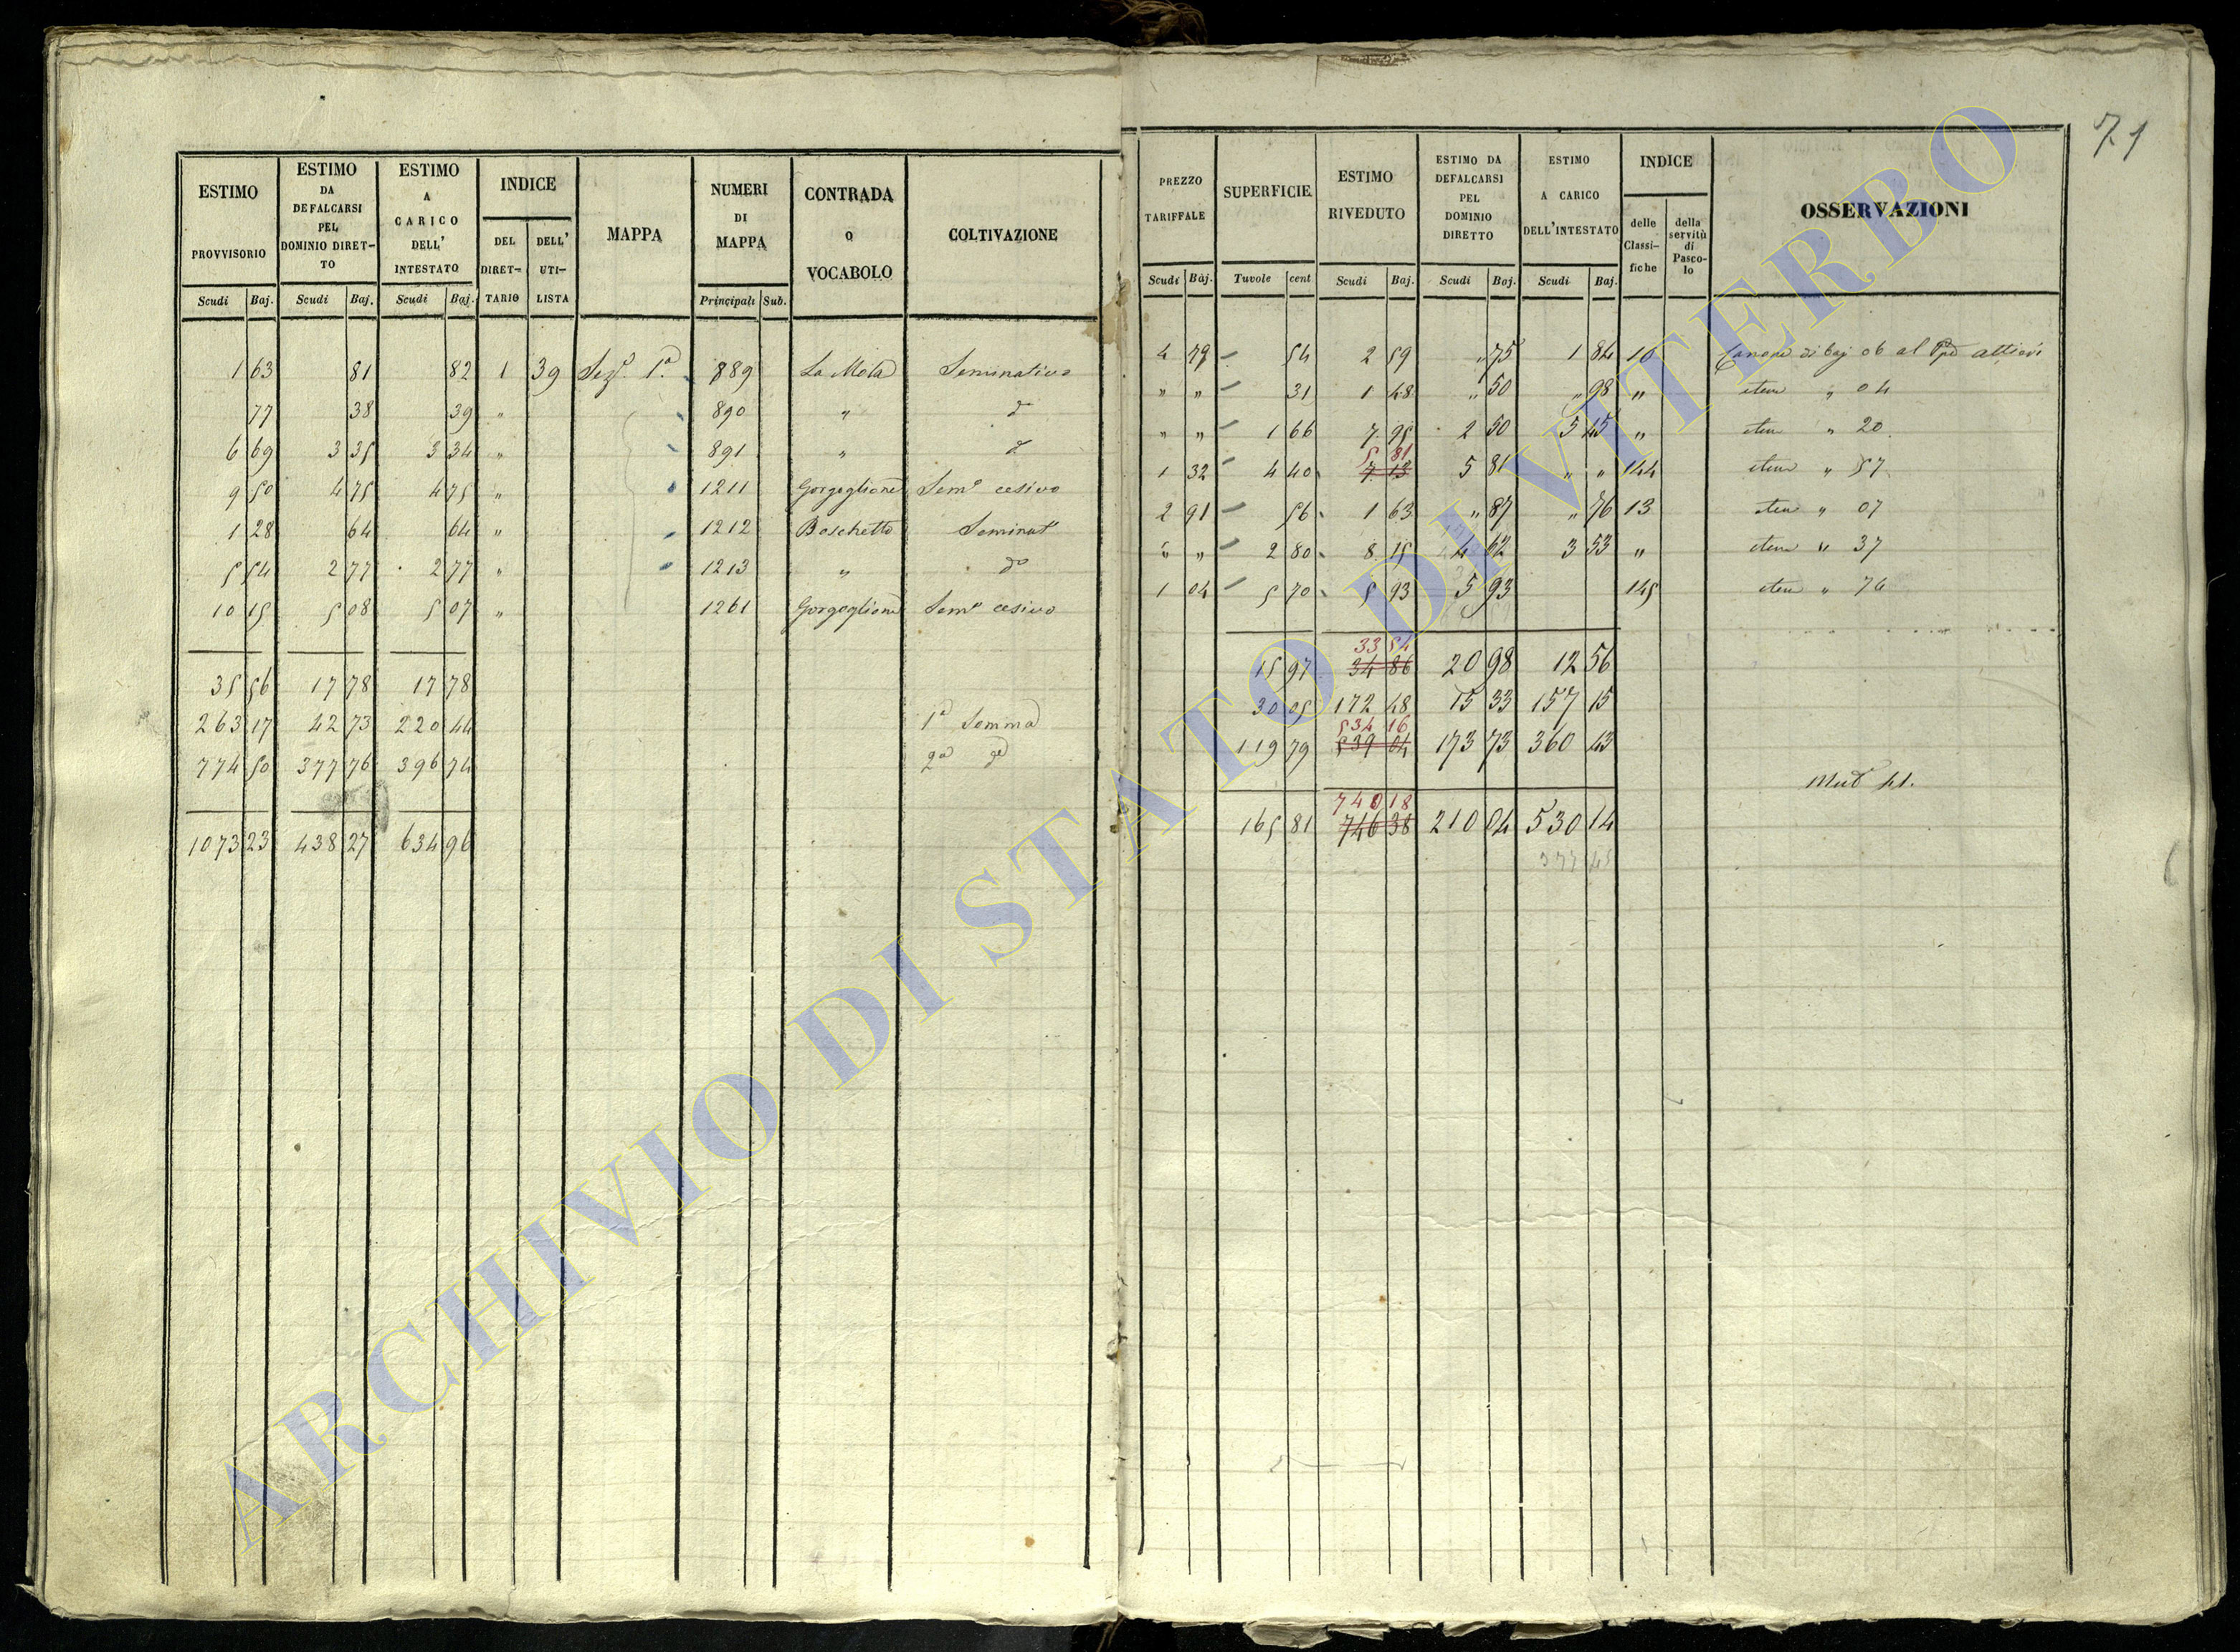 71
ESTIMO PROVVISORIO | ESTIMO DA DEFALCARSI PEL DOMINIO DIRET-TO | ESTIMO A CARICO DELL' INTESTATO | INDICE DEL DIRET-TARIO | DELL' UTI-LISTA | MAPPA | NUMERI DI MAPPA | CONTRADA O VOCABOLO | COLTIVAZIONE
Scudi Baj. | Scudi Baj. | Scudi Baj. | Principali Sub.
1 63 | 81 | 82 | 1 | 39 | Seze. 1a. | 889 | La Mola | Seminativo
77 | 38 | 39 | " | 890 | " | do
6 69 | 3 35 | 3 34 | " | 891 | " | do
9 50 | 4 75 | 4 75 | " | 1211 | Gorgoglione | Semo cesivo
1 28 | 64 | 64 | " | 1212 | Boschetto | Seminato
5 54 | 2 77 | 2 77 | " | 1213 | " | do
10 15 | 5 08 | 5 07 | " | 1261 | Gorgoglione | Semo cesivo
35 56 | 17 78 | 17 78
263 17 | 42 73 | 220 44 | 1a Somma
774 50 | 377 76 | 396 74 | 2a da
1073 23 | 438 27 | 634 96
PREZZO TARIFFALE | SUPERFICIE | ESTIMO RIVEDUTO | ESTIMO DA DEFALCARSI PEL DOMINIO DIRETTO | ESTIMO A CARICO DELL'INTESTATO | INDICE delle Classi-fiche | della servitù di Pasco-lo | OSSERVAZIONI
Scudi Baj. | Tavole cent | Scudi Baj. | Scudi Baj. | Scudi Baj.
4 79 | 54 | 2 59 | " 75 | 1 84 | 10 | Canone di baj 06 al
" " | 31 | 1 48 | " 50 | " 98 | " | item " 04
" " | 1 66 | 7 95 | 2 50 | 5 45 | " | item " 20
5 81
1 32 | 4 40 | 7 13 | 5 81 | " " | 144 | item " 57
2 91 | 56 | 1 63 | " 87 | " 76 | 13 | item " 07
" " | 2 80 | 8 15 | 4 62 | 3 53 | " | item " 37
1 04 | 5 70 | 5 93 | 5 93 | 145 | item " 76
33 54
15 97 | 34 86 | 20 98 | 12 56
30 05 | 172 48 | 15 33 | 157 15
534 16
119 79 | 539 04 | 173 73 | 360 43
740 18
165 81 | 746 38 | 210 04 | 530 14
ARCHIVIO DI STATO DI VITERBO